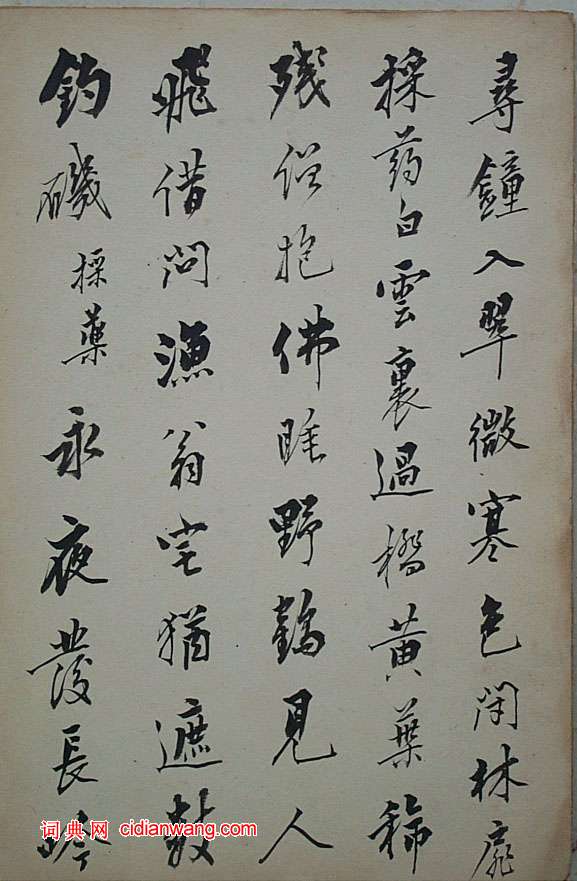 尋鐘入翠微寒色閉林扉
採药白雲裏過橋黄葉稀
残僧抱佛睡野鶴見人
飛借问漁翁宅猶遮
釣磯採藥永夜發長吟
词典网 cidianwang.com